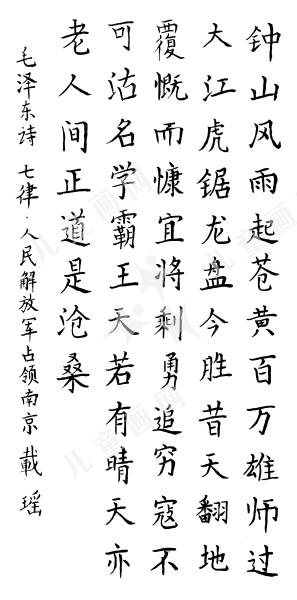 钟山风雨起苍黄百万雄师过
大江虎锯龙盘今胜昔天翻地
覆慨而慷宜将剩勇追穷寇不
可沽名学霸王天若有晴天亦
老人间正道是沧桑
毛泽东诗 七律·人民解放军占领南京 載瑶